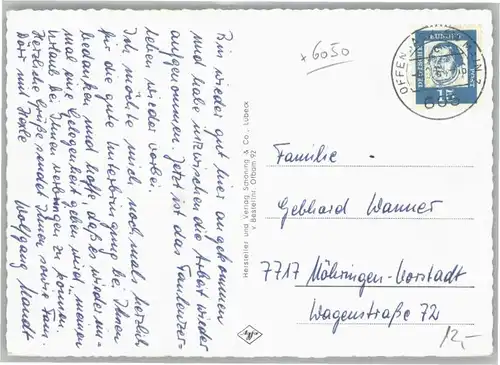 Bin wieder gut hier angekommen
und habe inzwischen die Arbeit wieder
aufgenommen. Jetzt ist das Faulenzer-
leben wieder vorbei.
Ich möchte mich nochmals herzlich
für die gute Unterbringung bei Ihnen
bedanken und hoffe daß es wieder ein-
mal eine Gelegenheit geben wird, meinen
Urlaub bei Ihnen verbringen zu können.
Herzliche Grüße sendet Ihnen sowie Fam.
Dörr und
Wolfgang
Hersteller und Verlag Schöning & Co., Lübeck
Bestellnr.
x6050
OFFENBACH
605
DEUTSCHE
15
LUTHER
Familie
Gebhard Wanner
7717 Möhringen-Vorstadt
Wagenstraße 72
12,-